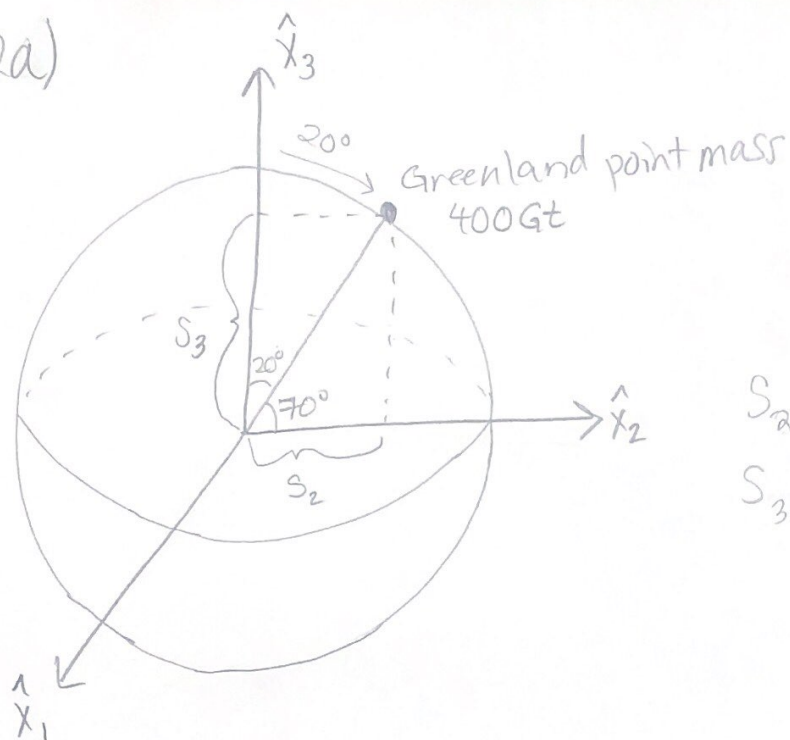 2a)
X̂₃
20°
Greenland point mass
400Gt
S₃
20°
70°
X̂₂
S₂
S₂
S₃
X̂₁